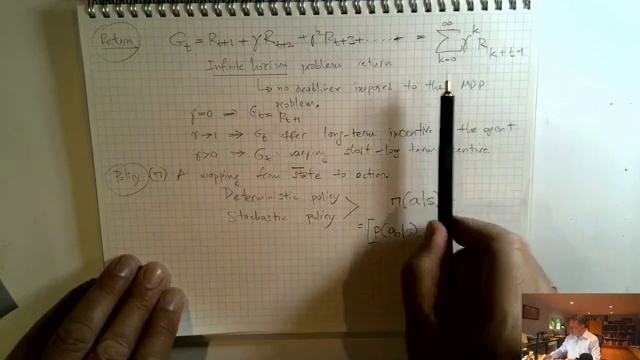 Return G_t = R_{t+1} + γ R_{t+2} + γ² R_{t+3} + ..... + = ∑_{k=0}^{∞} γ^k R_{k+t+1}
Infinite horizon problem return
↳ no deadline imposed to the MDP
problem.
γ=0 → G_t = R_{t+1}
γ→1 ⇒ G_t offer long-term incentive the agent
γ>0 ⇒ G_t varying short-long term incentive
Policy (π) A mapping from state to action.
Deterministic policy
Stochastic policy
> π(a|s)
= [p(a_0|s)